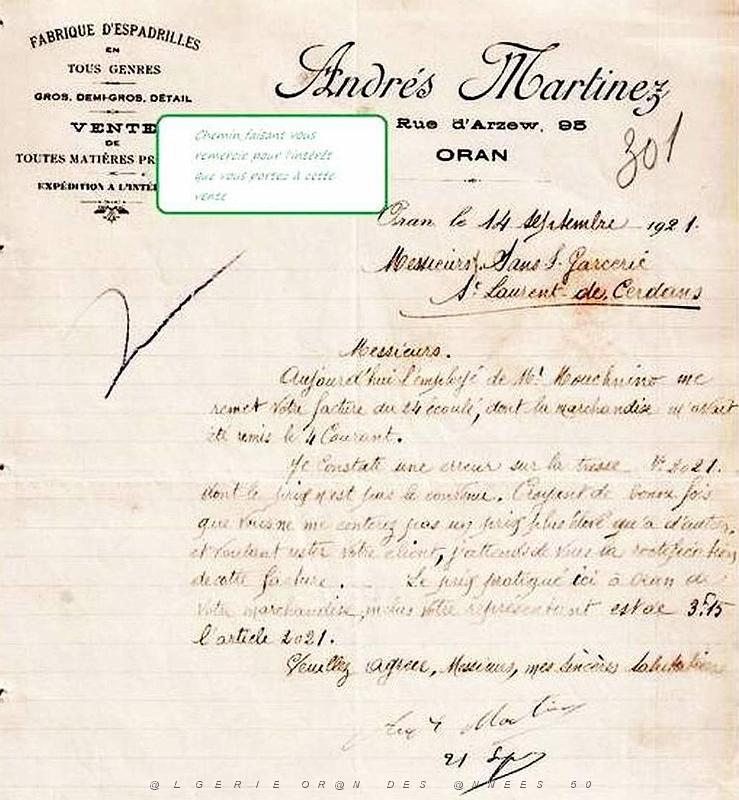 FABRIQUE D'ESPADRILLES
EN
TOUS GENRES
GROS, DEMI-GROS, DÉTAIL
VENTE
DE
TOUTES MATIÈRES
EXPÉDITION A
Andrés Martinez
Rue d'Arzew, 95
ORAN
301
Chemin faisant vous
remercie pour l'intérêt
que vous portez à cette
vente
Oran le 14 septembre 1921.
Messieurs Sans & Garcerie
St Laurent de Cerdans
Messieurs.
Aujourd'hui l'employé de Mr Mouchnino me
remet votre facture du 24 écoulé, dont la marchandise m'avait
été remis le 4 Courant.
Je Constate une erreur sur la tresse No 2021.
dont le prix n'est pas le convenu. Croyant de bonne fois
que vous ne me conterez pas un prix plus élevé qu'a d'autres,
et voulant rester votre client, j'attends de vous la rectification
de cette facture. Le prix pratiqué ici à Oran de
votre marchandise, inclus votre représentant est de 3f15
l'article 2021.
Veuillez agréer, Messieurs, mes sincères salutations
Martinez
21
@LGERIE OR@N DES @NNEES 50